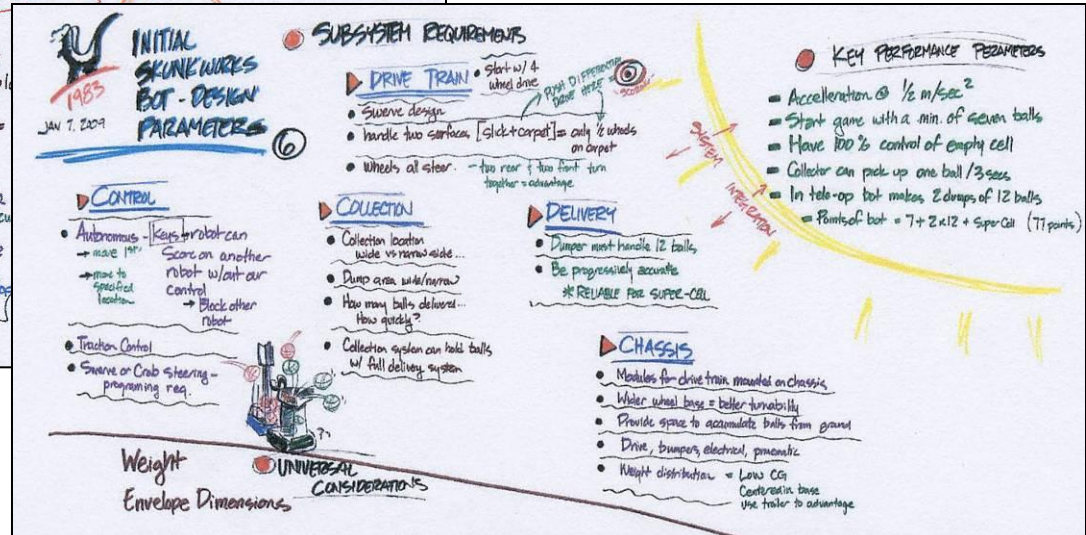 INITIAL
SKUNKWORKS
BOT-DESIGN
PARAMETERS
1983
JAN 7. 2009
6
SUBSYSTEM REQUIREMENTS
DRIVE TRAIN
Start w/ 4
wheel drive
PUSH DIFFERENTIAL
DRIVE HERE =
Swerve design
handle two surfaces [slick+carpet] = only 1/2 wheels
on carpet
Wheels all steer. - two rear & two front turn
together = advantage.
CONTROL
Autonomous - Keys robot can
→ move 1st
Score on another
robot w/out our
control
→ move to
specified
location
→ Block other
robot
Traction Control
Swerve or Crab steering -
programing req.
COLLECTION
Collection location
wide vs narrow side...
Dump area wide/narrow
How many balls delivered...
How quickly?
Collection system can hold balls
w/ full delivery system
DELIVERY
Dumper must handle 12 balls
Be progressively accurate
* RELIABLE FOR SUPER-CELL
CHASSIS
Modules for drive train mounted on chassis
Wider wheel base = better turnability
Provide space to accumulate balls from ground
Drive, bumpers, electrical, pnuematic
Weight distribution = Low CG
Centered in base
use trailer to advantage
SYSTEM
INTEGRATION
KEY PERFORMANCE PERAMETERS
Accelleration @ 1/2 m/sec²
Start game with a min. of seven balls
Have 100% control of empty cell
Collector can pick up one ball/3secs
In tele-op bot makes 2 dumps of 12 balls
= Points of bot = 7 + 2x12 + Super Cell (77 points)
??
UNIVERSAL
CONSIDERATIONS
Weight
Envelope Dimensions